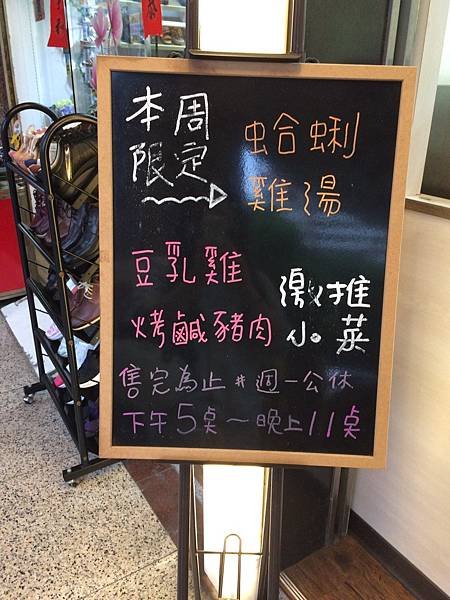 本周
限定
蛤蜊
雞湯
豆乳雞
烤鹹豬肉
激推
小菜
售完為止 # 週一公休
下午5桌~晚上11桌